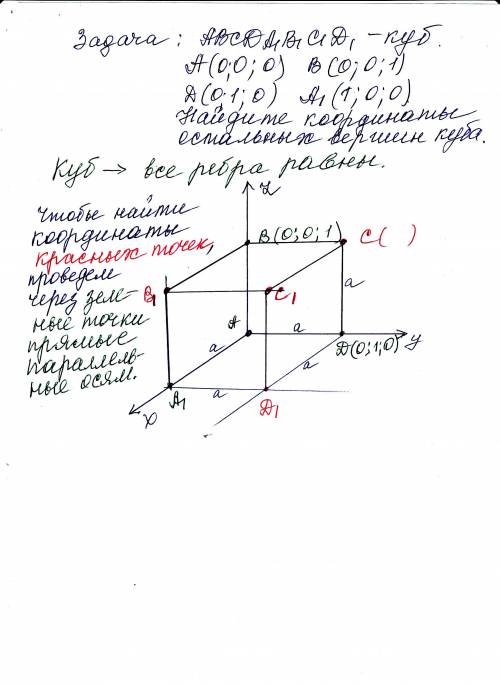 Задача: ABCDA₁B₁C₁D₁ - куб.
A(0;0;0) B(0;0;1)
D(0;1;0) A₁(1;0;0)
Найдите координаты
остальных вершин куба.
Куб → все ребра равны.
Чтобы найти
координаты
красных точек,
проведем
через зеле-
ные точки
прямые
параллель-
ные осям.
Z
B(0;0;1)
C( )
B₁
C₁
a
A
a
У
D(0;1;0)
a
a
A₁
a
D₁
X